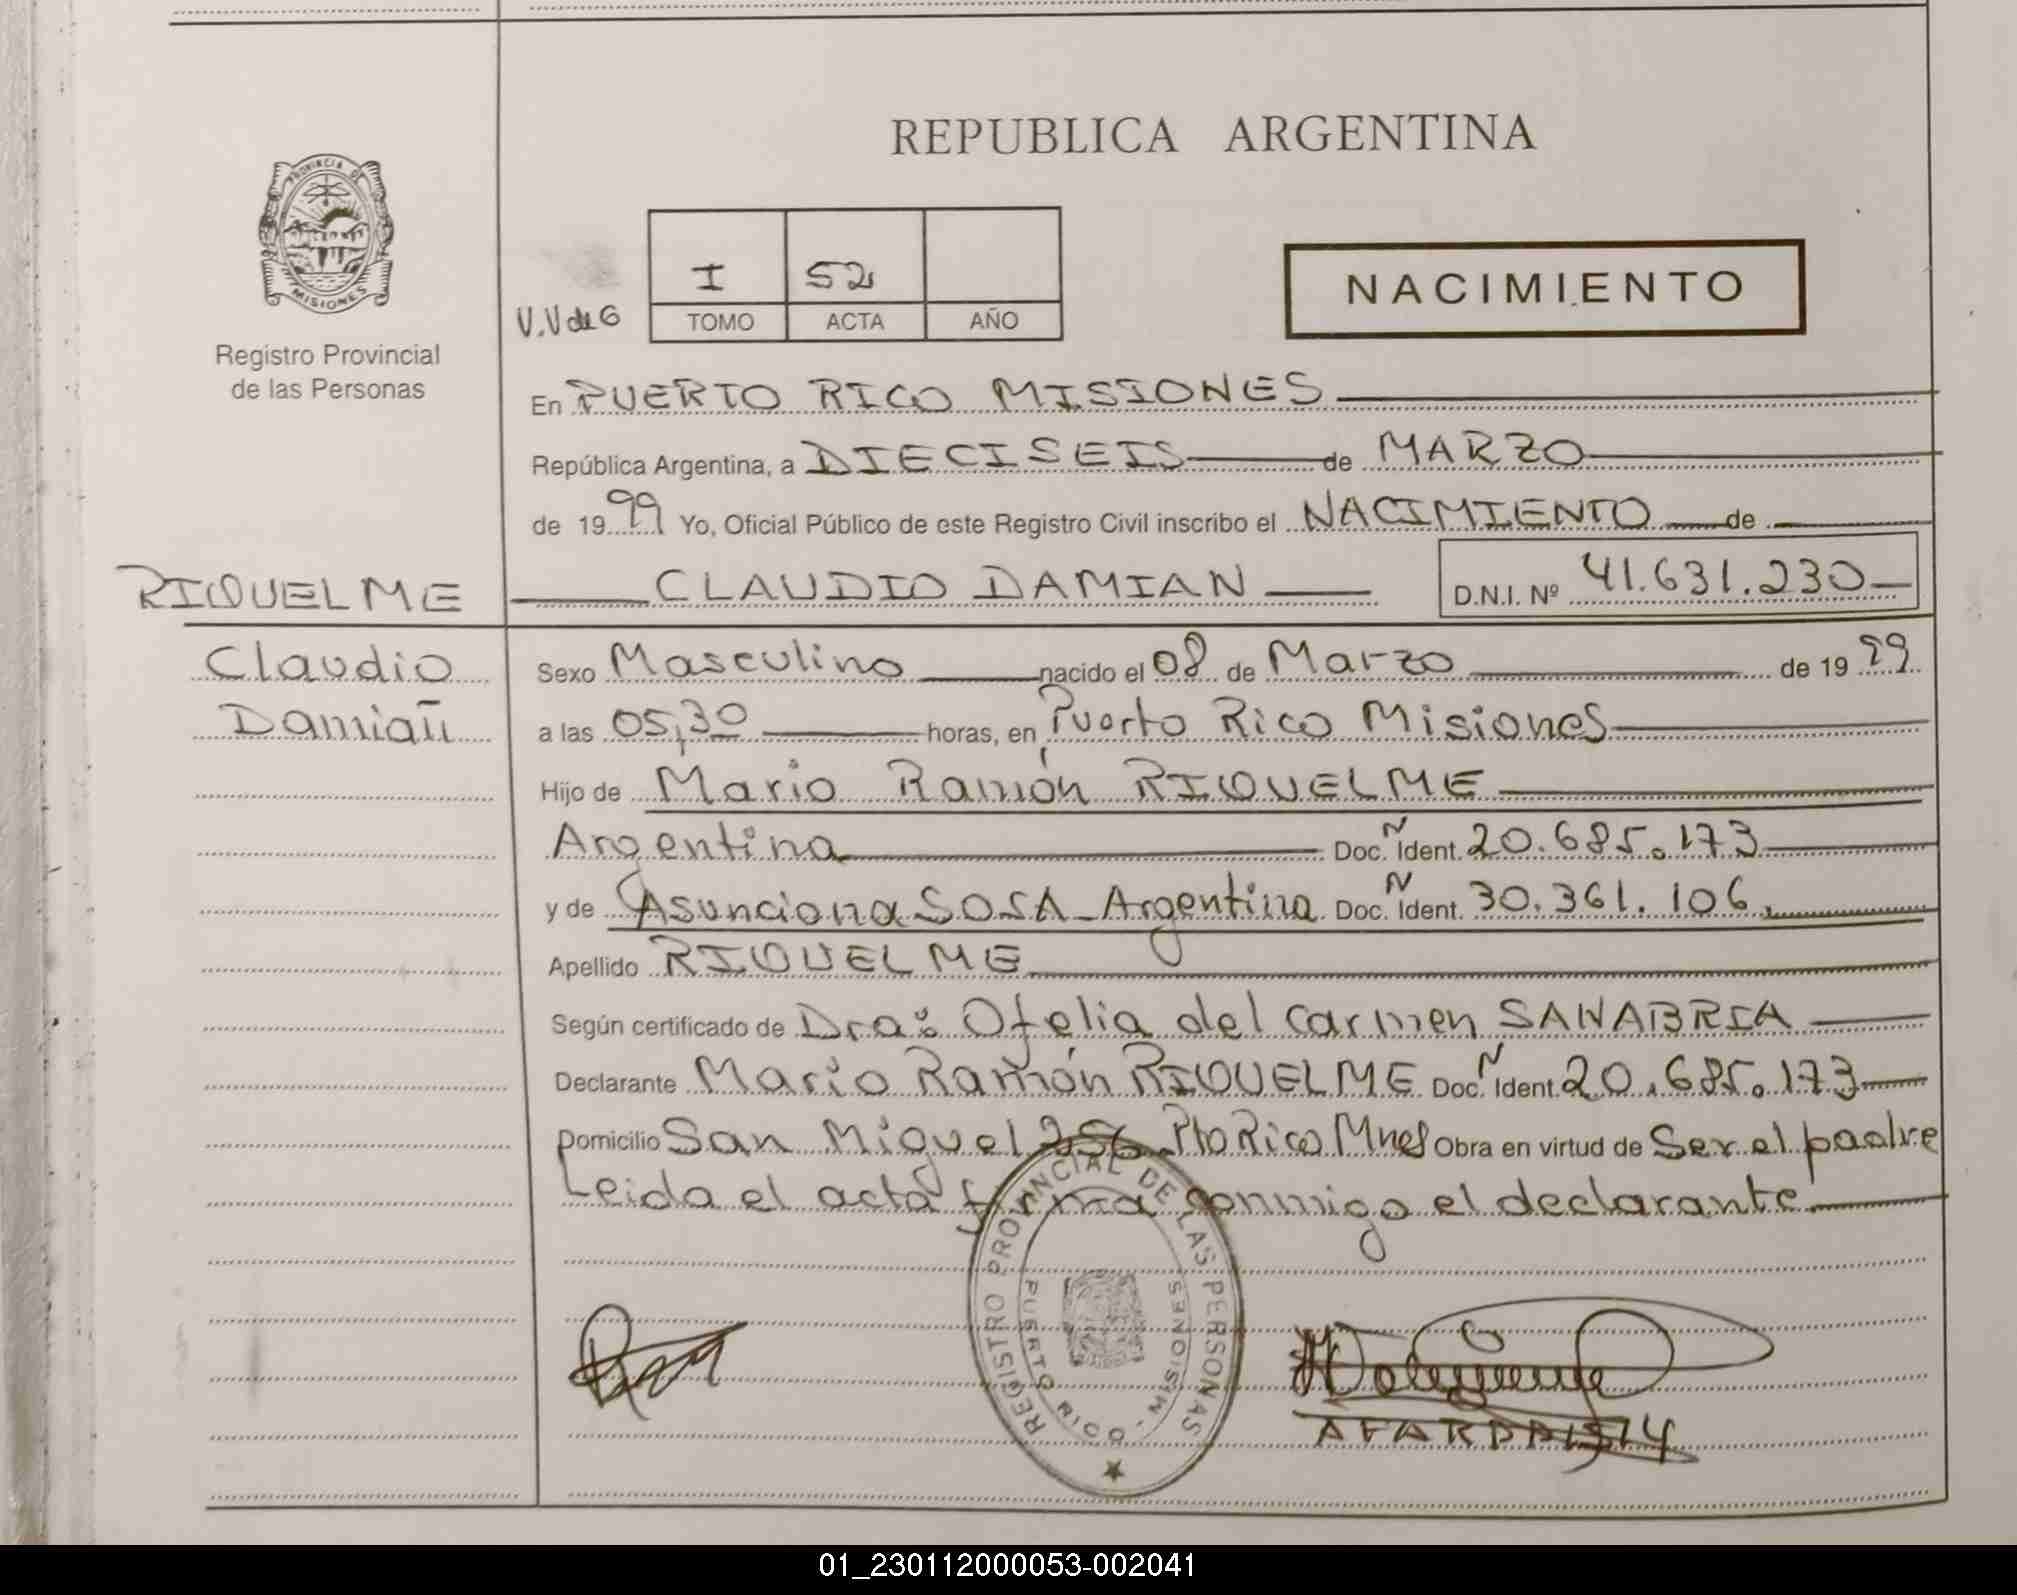 REPUBLICA ARGENTINA
PROVINCIA DE
MISIONES
Registro Provincial
de las Personas
V.V de G
I 52
TOMO ACTA AÑO
NACIMIENTO
En PUERTO RICO MISIONES
República Argentina, a DIECISEIS de MARZO
de 1999 Yo, Oficial Público de este Registro Civil inscribo el NACIMIENTO de
RIQUELME CLAUDIO DAMIAN D.N.I. Nº 41.631.230
Claudio
Damian
Sexo Masculino nacido el 08 de Marzo de 1999
a las 05,30 horas, en Puerto Rico Misiones
Hijo de Mario Ramón RIQUELME
Argentina Doc. Ident. 20.685.173
y de Asunciona SOSA - Argentina Doc. Ident. 30.361.106.
Apellido RIQUELME
Según certificado de Dra: Ofelia del Carmen SANABRIA
Declarante Mario Ramón RIQUELME Doc. Ident. 20.685.173
Domicilio San Miguel 256 Pto Rico Mnes Obra en virtud de Ser el padre
Leida el acta firma conmigo el declarante
REGISTRO PROVINCIAL DE LAS PERSONAS
PUERTO RICO - MISIONES
01_230112000053-002041